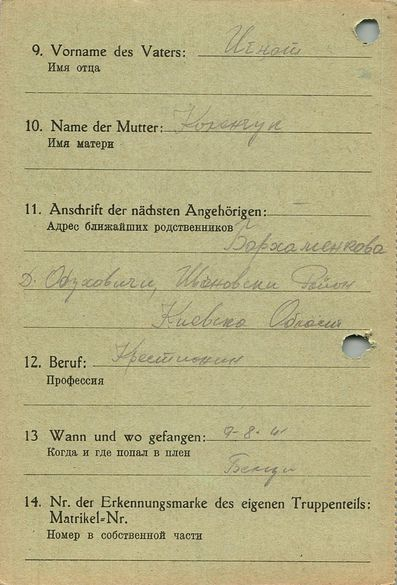 9. Vorname des Vaters: Игнат
Имя отца
10. Name der Mutter: Коренчук
Имя матери
11. Anschrift der nächsten Angehörigen:
Адрес ближайших родственников
Д. Обуховичи, Ивановски Район
Киевско Области
12. Beruf: Крестианин
Профессия
13 Wann und wo gefangen: 9-8-41
Когда и где попал в плен
14. Nr. der Erkennungsmarke des eigenen Truppenteils:
Matrikel-Nr.
Номер в собственной части